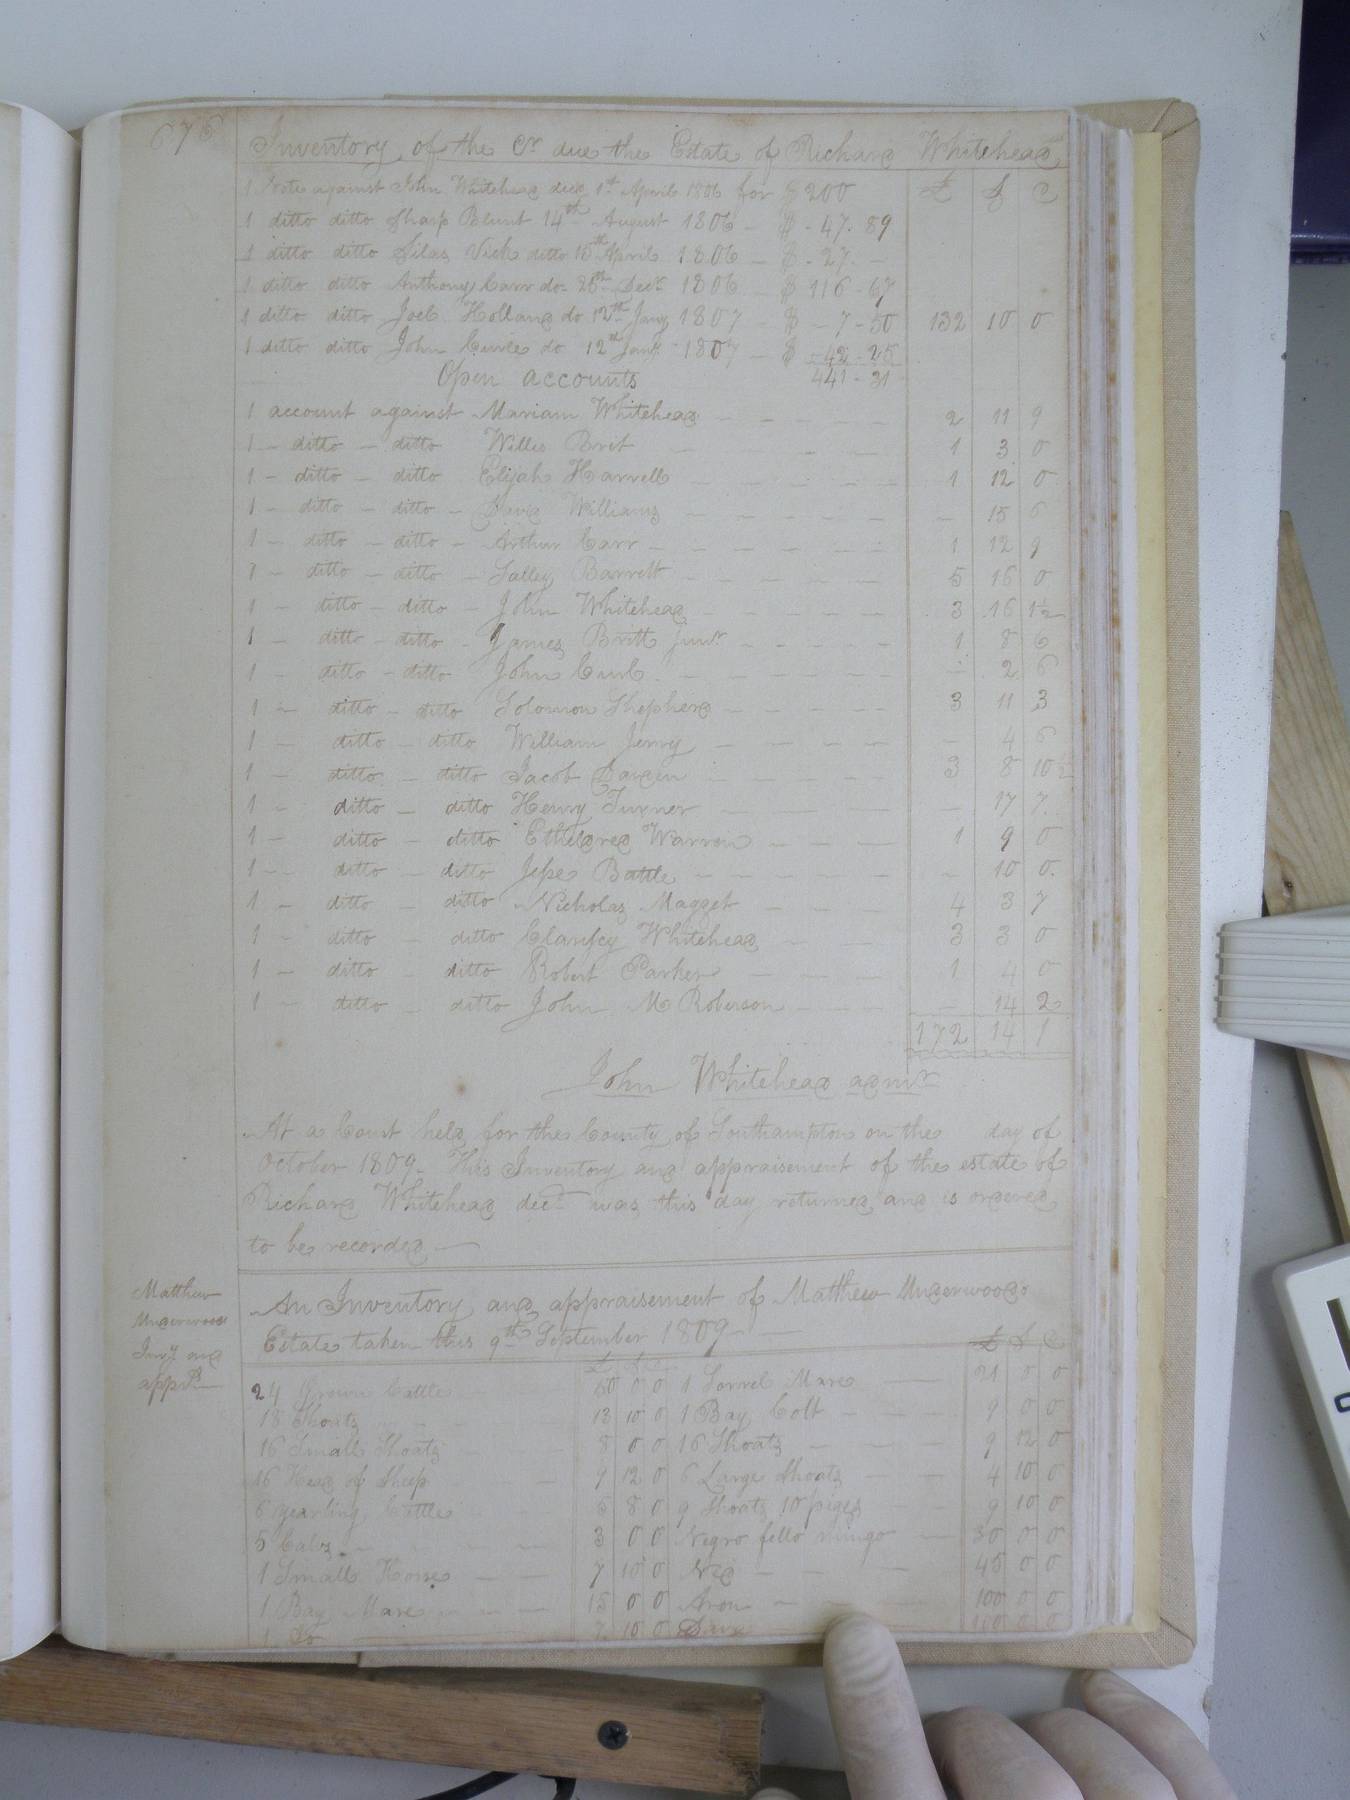 676
Inventory of the Cr due the Estate of Richard Whitehead
1 Note against John Whitehead decd 1st April 1806 for $ 200 £ S D
1 ditto ditto Sharp Blunt 14th August 1806 - $ - 47. 89
1 ditto ditto Silas Vick ditto 15th April 1806 - $ - 27 - -
1 ditto ditto Anthony Carr do- 25th Decr 1806 - $ 116 - 67
1 ditto ditto Joel Holland do 12th Jany 1807 - $ - 7 - 50 132 10 0
1 ditto ditto John Curle do 12th Jany 1807 - $ - 42 - 25
Open accounts 441 - 31
1 account against Mariam Whitehead - - - - - 2 11 9
1 - ditto - ditto Willis Brit - - - - 1 3 0
1 - ditto - ditto Elijah Harrell - - - - - 1 12 0
1 - ditto - ditto - David Williams - - - - - - 15 6
1 - ditto - ditto - Arthur Carr - - - - - - 1 12 9
1 - ditto - ditto - Salley Barrett - - - - - 5 16 0
1 - ditto - ditto - John Whitehead - - - - - 3 16 1½
1 - ditto - ditto - James Britt Junr - - - - - 1 8 6
1 - ditto - ditto John Curl - - - - - - - 2 6
1 - ditto - ditto Solomon Shepherd - - - - - 3 11 3
1 - ditto - ditto William Jerry - - - - - 4 6
1 - ditto - ditto Jacob Darden - - - - 3 8 10½
1 - ditto - ditto Henry Turner - - - - 17 7
1 - ditto - ditto Etheldred Warren - - - 1 9 0
1 - ditto - ditto Jesse Battle - - - - - - 10 0
1 - ditto - ditto Nicholas Magget - - - 4 3 7
1 - ditto - ditto Clarissey Whitehead - - 3 3 0
1 - ditto - ditto Robert Parker - - - 1 4 0
1 - ditto - ditto John M Roberson - - - - 14 2
172 14 1
John Whitehead admr
At a Court held for the County of Southampton on the day of
October 1809- This Inventory and appraisement of the estate of
Richard Whitehead decd was this day returned and is ordered
to be recorded -
Matthew
Underwood
Invy and
apprt
An Inventory and appraisement of Matthew Underwoods
Estate taken this 9th September 1809 - £ S D
24 Grown Cattle 50 0 0 1 Sorrel Mare - - 21 0 0
18 Shoats - - - 13 10 0 1 Bay Colt - - - 9 0 0
16 Small Shoats - 8 0 0 16 Shoats - - - 9 12 0
16 Head of Sheep - 9 12 0 6 Large Shoats - - 4 10 0
6 yearling Cattle 6 8 0 9 Shoats 10 piggs - - 9 10 0
5 Calvs - - - 3 0 0 Negro fello mingo - 30 0 0
1 Small Horse - - 7 10 0 Ned - - - 45 0 0
1 Bay Mare - - - 15 0 0 Aron - - 100 0 0
1 Do 7 10 0 Dave 100 0 0